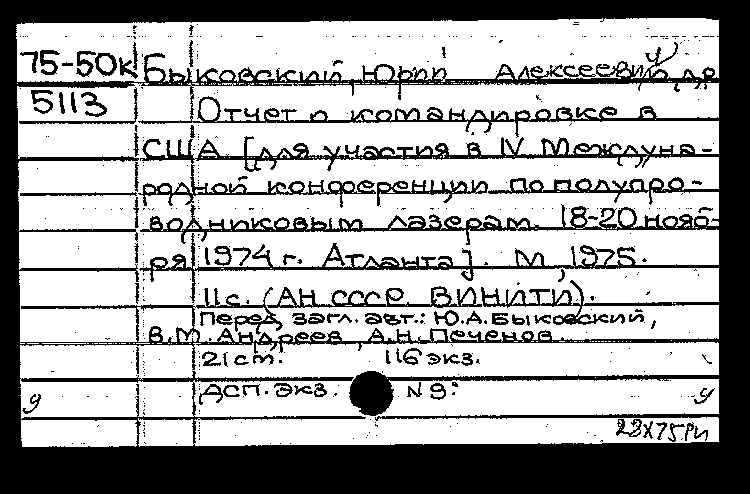 75-50К Быковский, Юрий Алексеевич и др
5113 Отчет о командировке в
США. [для участия в IV Междуна-
родной конференции по полупро-
водниковым лазерам. 18-20 нояб-
ря 1974 г. Атланта]. М., 1975.
11с. (АН СССР. ВИНИТИ).
Перед загл. авт.: Ю.А.Быковский,
В.М.Андреев, А.Н.Печенов.
21 ст. 116 экз.
ДСП. экз. №9:
28X75